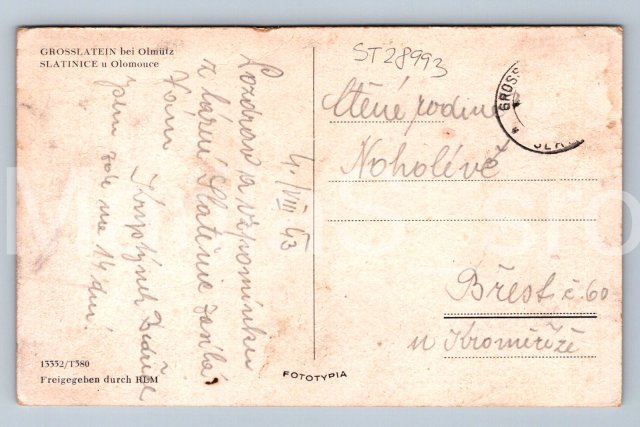 GROSSLATEIN bei Olmütz
SLATINICE u Olomouce
ST28993
GROSS
4./VIII 43
Pozdrav a vzpomínku
z lázní Slatinic zasílá
Vám
jsem zde na 14 dní.
Ctěné rodině
Noholévě
Břest č. 60
u Kroměříže
13352/T380
Freigegeben durch RLM
FOTOTYPIA